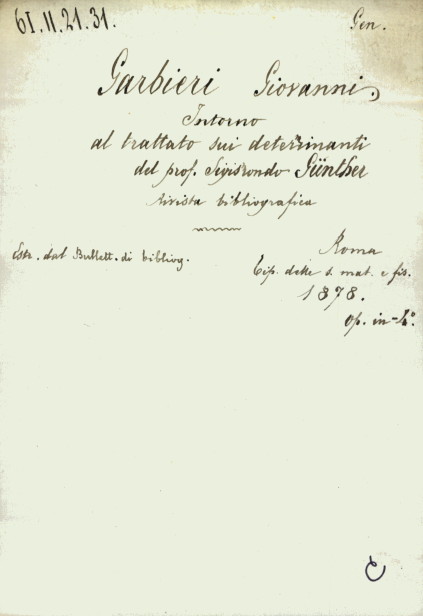 61.11.21.31.
Gen.
Garbieri Giovanni
Intorno
al trattato sui determinanti
del prof. Sigismondo Günther
rivista bibliografica
Estr. dal Bullett. di bibliog.
Roma
Tip. delle s. mat. e fis.
1878.
op. in-4°.
C